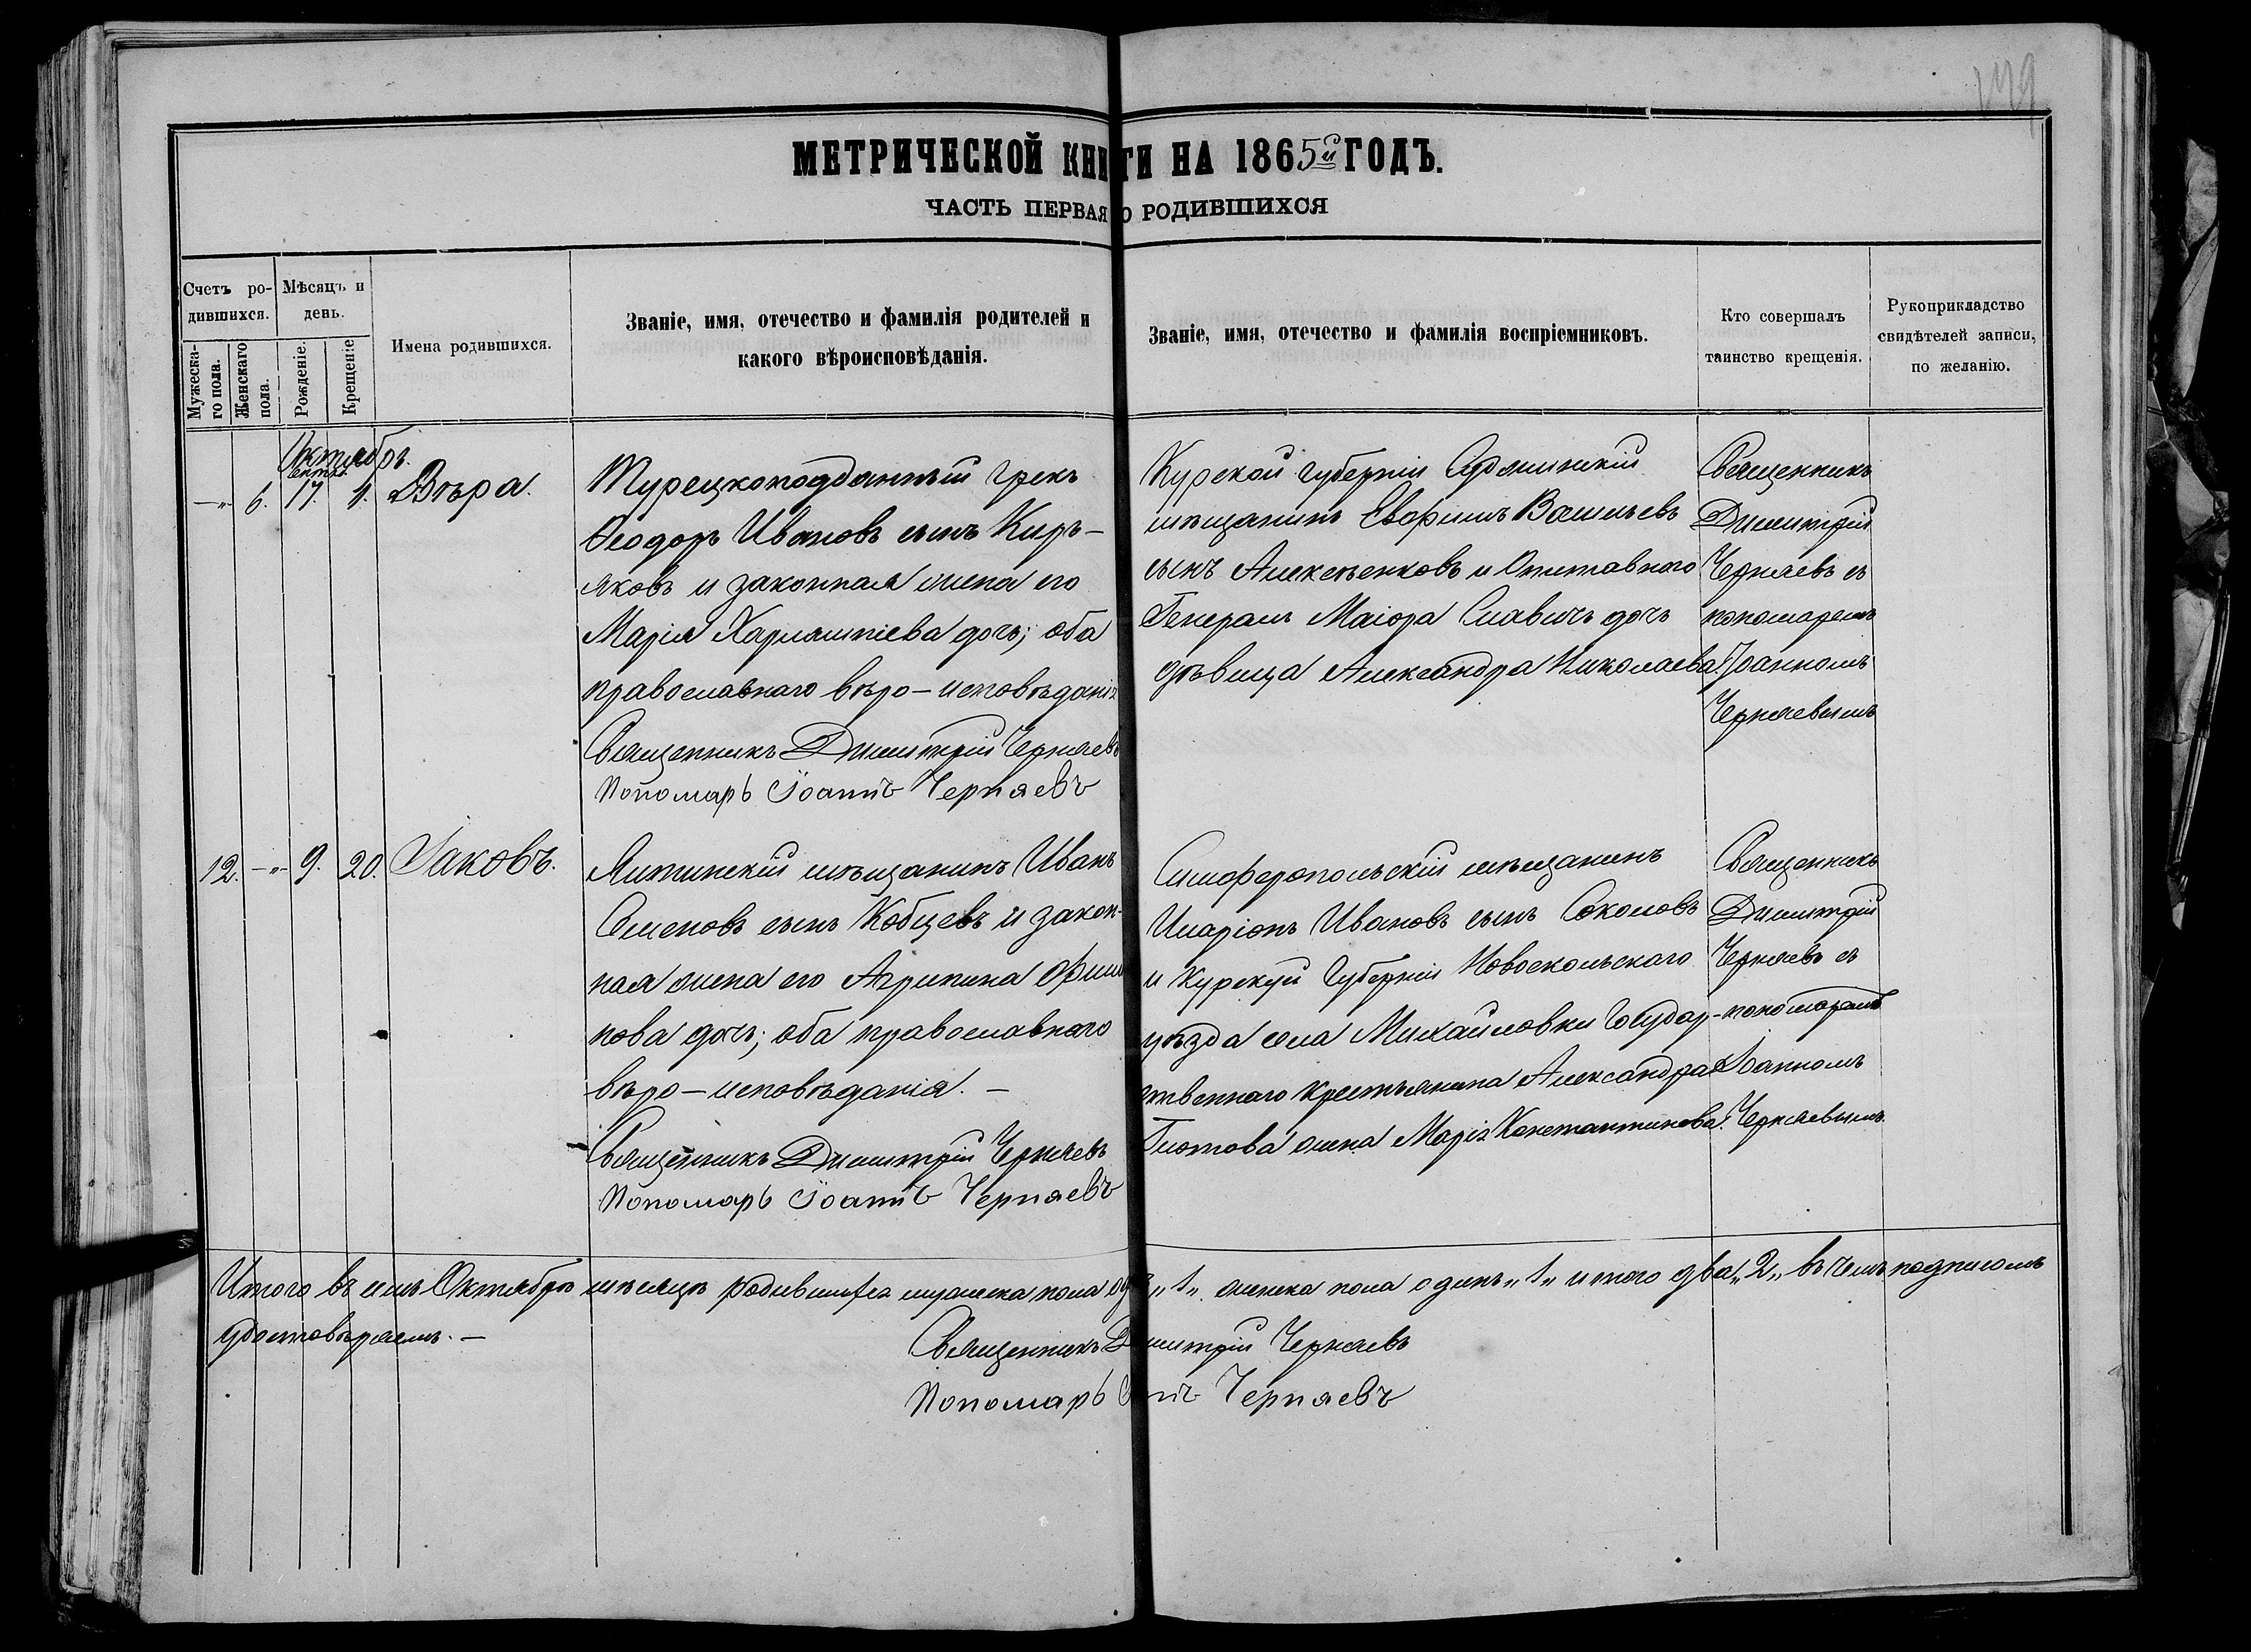 149
МЕТРИЧЕСКОЙ КНИГИ НА 1865й ГОДЪ.
ЧАСТЬ ПЕРВАЯ О РОДИВШИХСЯ
Счетъ ро-
дившихся.
Мужеска-
го пола.
Женскаго
пола.
Мѣсяцъ и
день.
Рожденіе.
Крещеніе
Имена родившихся.
Званіе, имя, отечество и фамилія родителей и
какого вѣроисповѣданія.
Званіе, имя, отечество и фамилія воспріемниковъ.
Кто совершалъ
таинство крещенія.
Рукоприкладство
свидѣтелей записи,
по желанію.
Октябрь.
-„- 6. 17. 1. Вѣра.
Турецкоподданный грекъ
Ѳеодоръ Ивановъ сынъ Киръ-
яковъ и законная жена его
Марія Харлампіева дочь; оба
православнаго вѣро-исповѣданія
Священникъ Димитрій Черняевъ
Пономарь Іоаннъ Черняевъ
Курской губерніи
мѣщанинъ Евфимъ Васильевъ
сынъ Алексѣенковъ и Отставного
Генералъ Маіора Славичъ дочь
дѣвица Александра Николаева.
Священникъ
Димитрій
Черняевъ съ
пономаремъ
Іоанномъ
Черняевымъ
12. -„- 9. 20. Іаковъ.
Ялтинскій мѣщанинъ Иванъ
Семеновъ сынъ Кобцевъ и закон-
ная жена его Агрипина Фили
пова дочь; оба православнаго
вѣро-исповѣданія. -
Священникъ Димитрій Черняевъ
Пономарь Іоаннъ Черняевъ
Симферопольскій мѣщанинъ
Иларіонъ Ивановъ сынъ Соколовъ
и Курской Губерніи Новоскольскаго
уѣзда села Михайловки Государ-
ственнаго крестьянина Александра
Глотова жена Марія Константинова.
Священникъ
Димитрій
Черняевъ съ
пономаремъ
Іоанномъ
Черняевымъ.
Итого въ Октябрѣ мѣсяцѣ родившихся мужеска пола од „1„ женска пола одинъ „1„ итого два „2„ въ чемъ подписомъ
удостовѣряемъ. -
Священникъ Димитрій Черняевъ
Пономарь Черняевъ